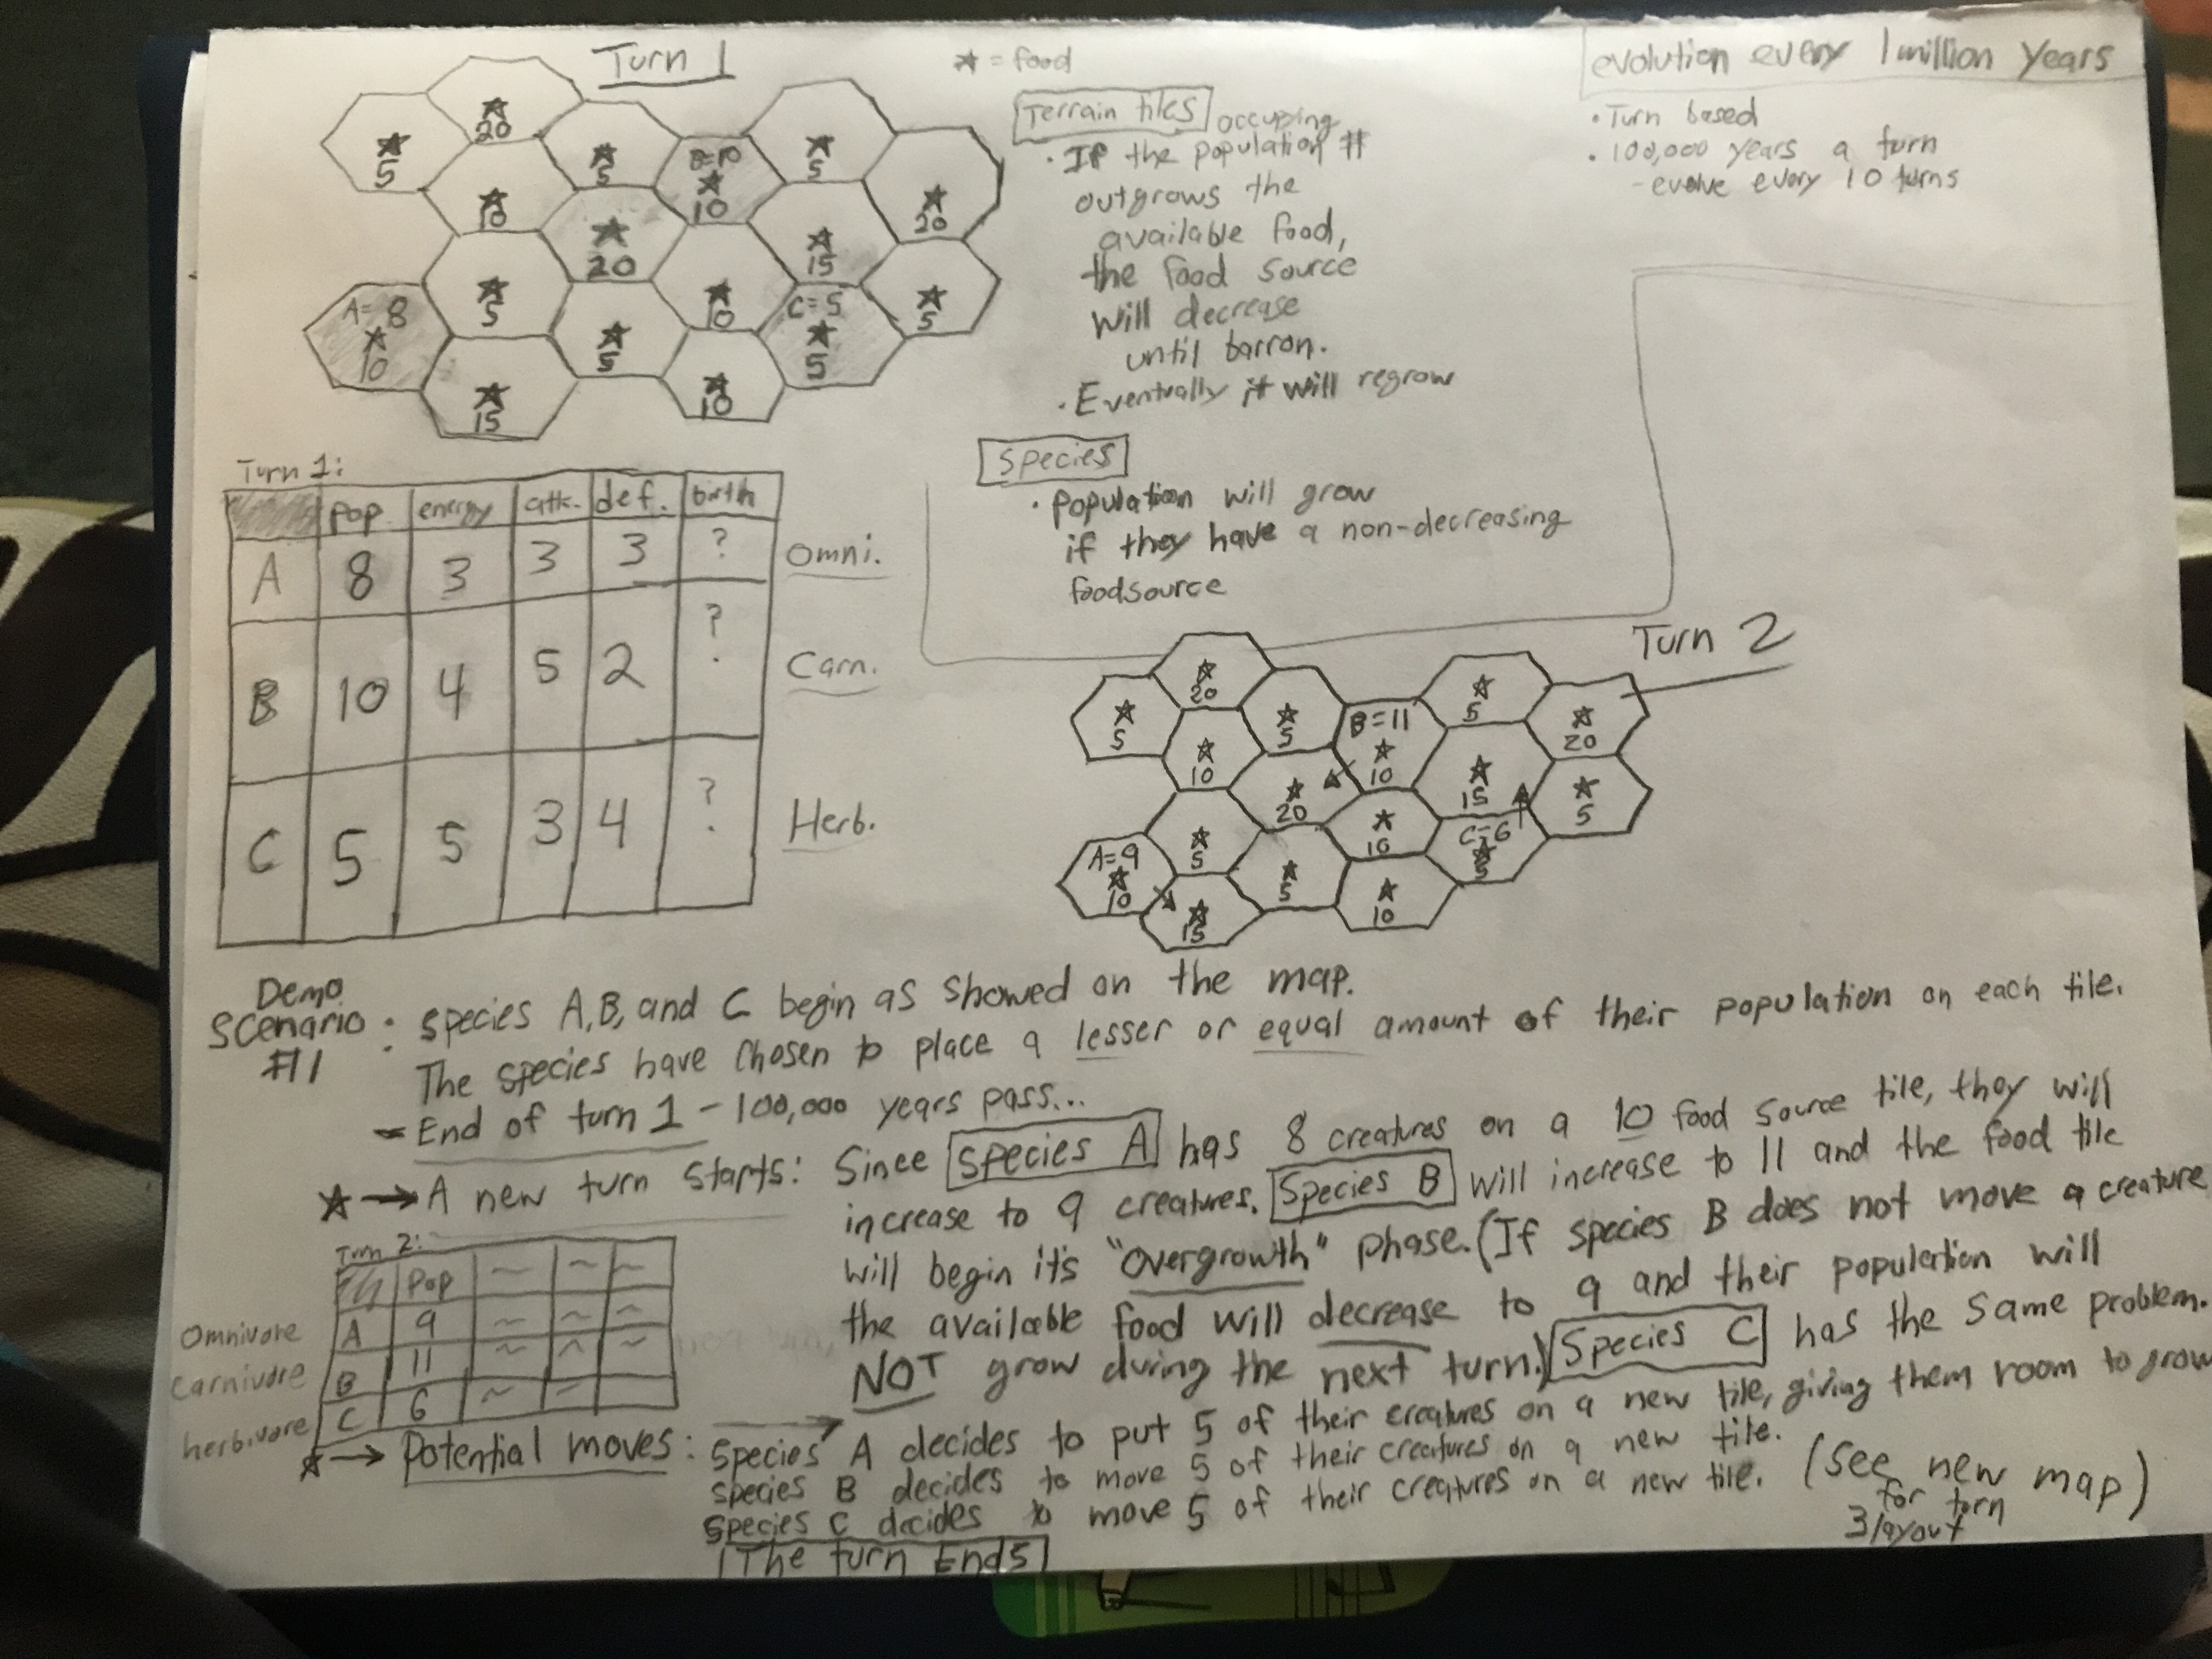 Turn 1
★ = food
evolution every 1 million years
• Turn based
• 100,000 years a turn
- evolve every 10 turns
Terrain tiles
occupying
• If the population #
outgrows the
available food,
the food source
will decrease
until barron.
• Eventually it will regrow
★ 20
★ 5
★ 5
B=10
★ 10
★ 5
★ 10
★ 20
★ 20
★ 15
★ 5
★ 10
C=5
★ 5
★ 5
A=8
★ 10
★ 5
★ 15
★ 10
Species
• Population will grow
if they have a non-decreasing
foodsource
Turn 1:
pop. energy attk. def. birth
A 8 3 3 3 ? Omni.
B 10 4 5 2 ? Carn.
C 5 5 3 4 ? Herb.
Turn 2
★ 20
★ 5
★ 5
B=11
★ 10
★ 5
★ 20
★ 10
★ 20
★ 15
★ 5
★ 5
★ 10
C=6
★ 5
A=9
★ 10
★ 5
★ 15
★ 10
Demo
Scenario
#1 : Species A, B, and C begin as showed on the map.
The species have chosen to place a lesser or equal amount of their population on each tile.
- End of turn 1 - 100,000 years pass...
★ → A new turn starts: Since Species A has 8 creatures on a 10 food source tile, they will
increase to 9 creatures. Species B will increase to 11 and the food tile
will begin it's "overgrowth" phase. (If species B does not move a creature
the available food will decrease to 9 and their population will
NOT grow during the next turn.) Species C has the same problem.
Turn 2:
Pop ~ ~ ~
Omnivore A 9 ~ ~ ~
Carnivore B 11 ~ ~ ~
herbivore C 6 ~ ~
★ → Potential moves: Species A decides to put 5 of their creatures on a new tile, giving them room to grow
Species B decides to move 5 of their creatures on a new tile.
Species C decides to move 5 of their creatures on a new tile. (See new map)
for turn
3 layout
[The turn Ends]